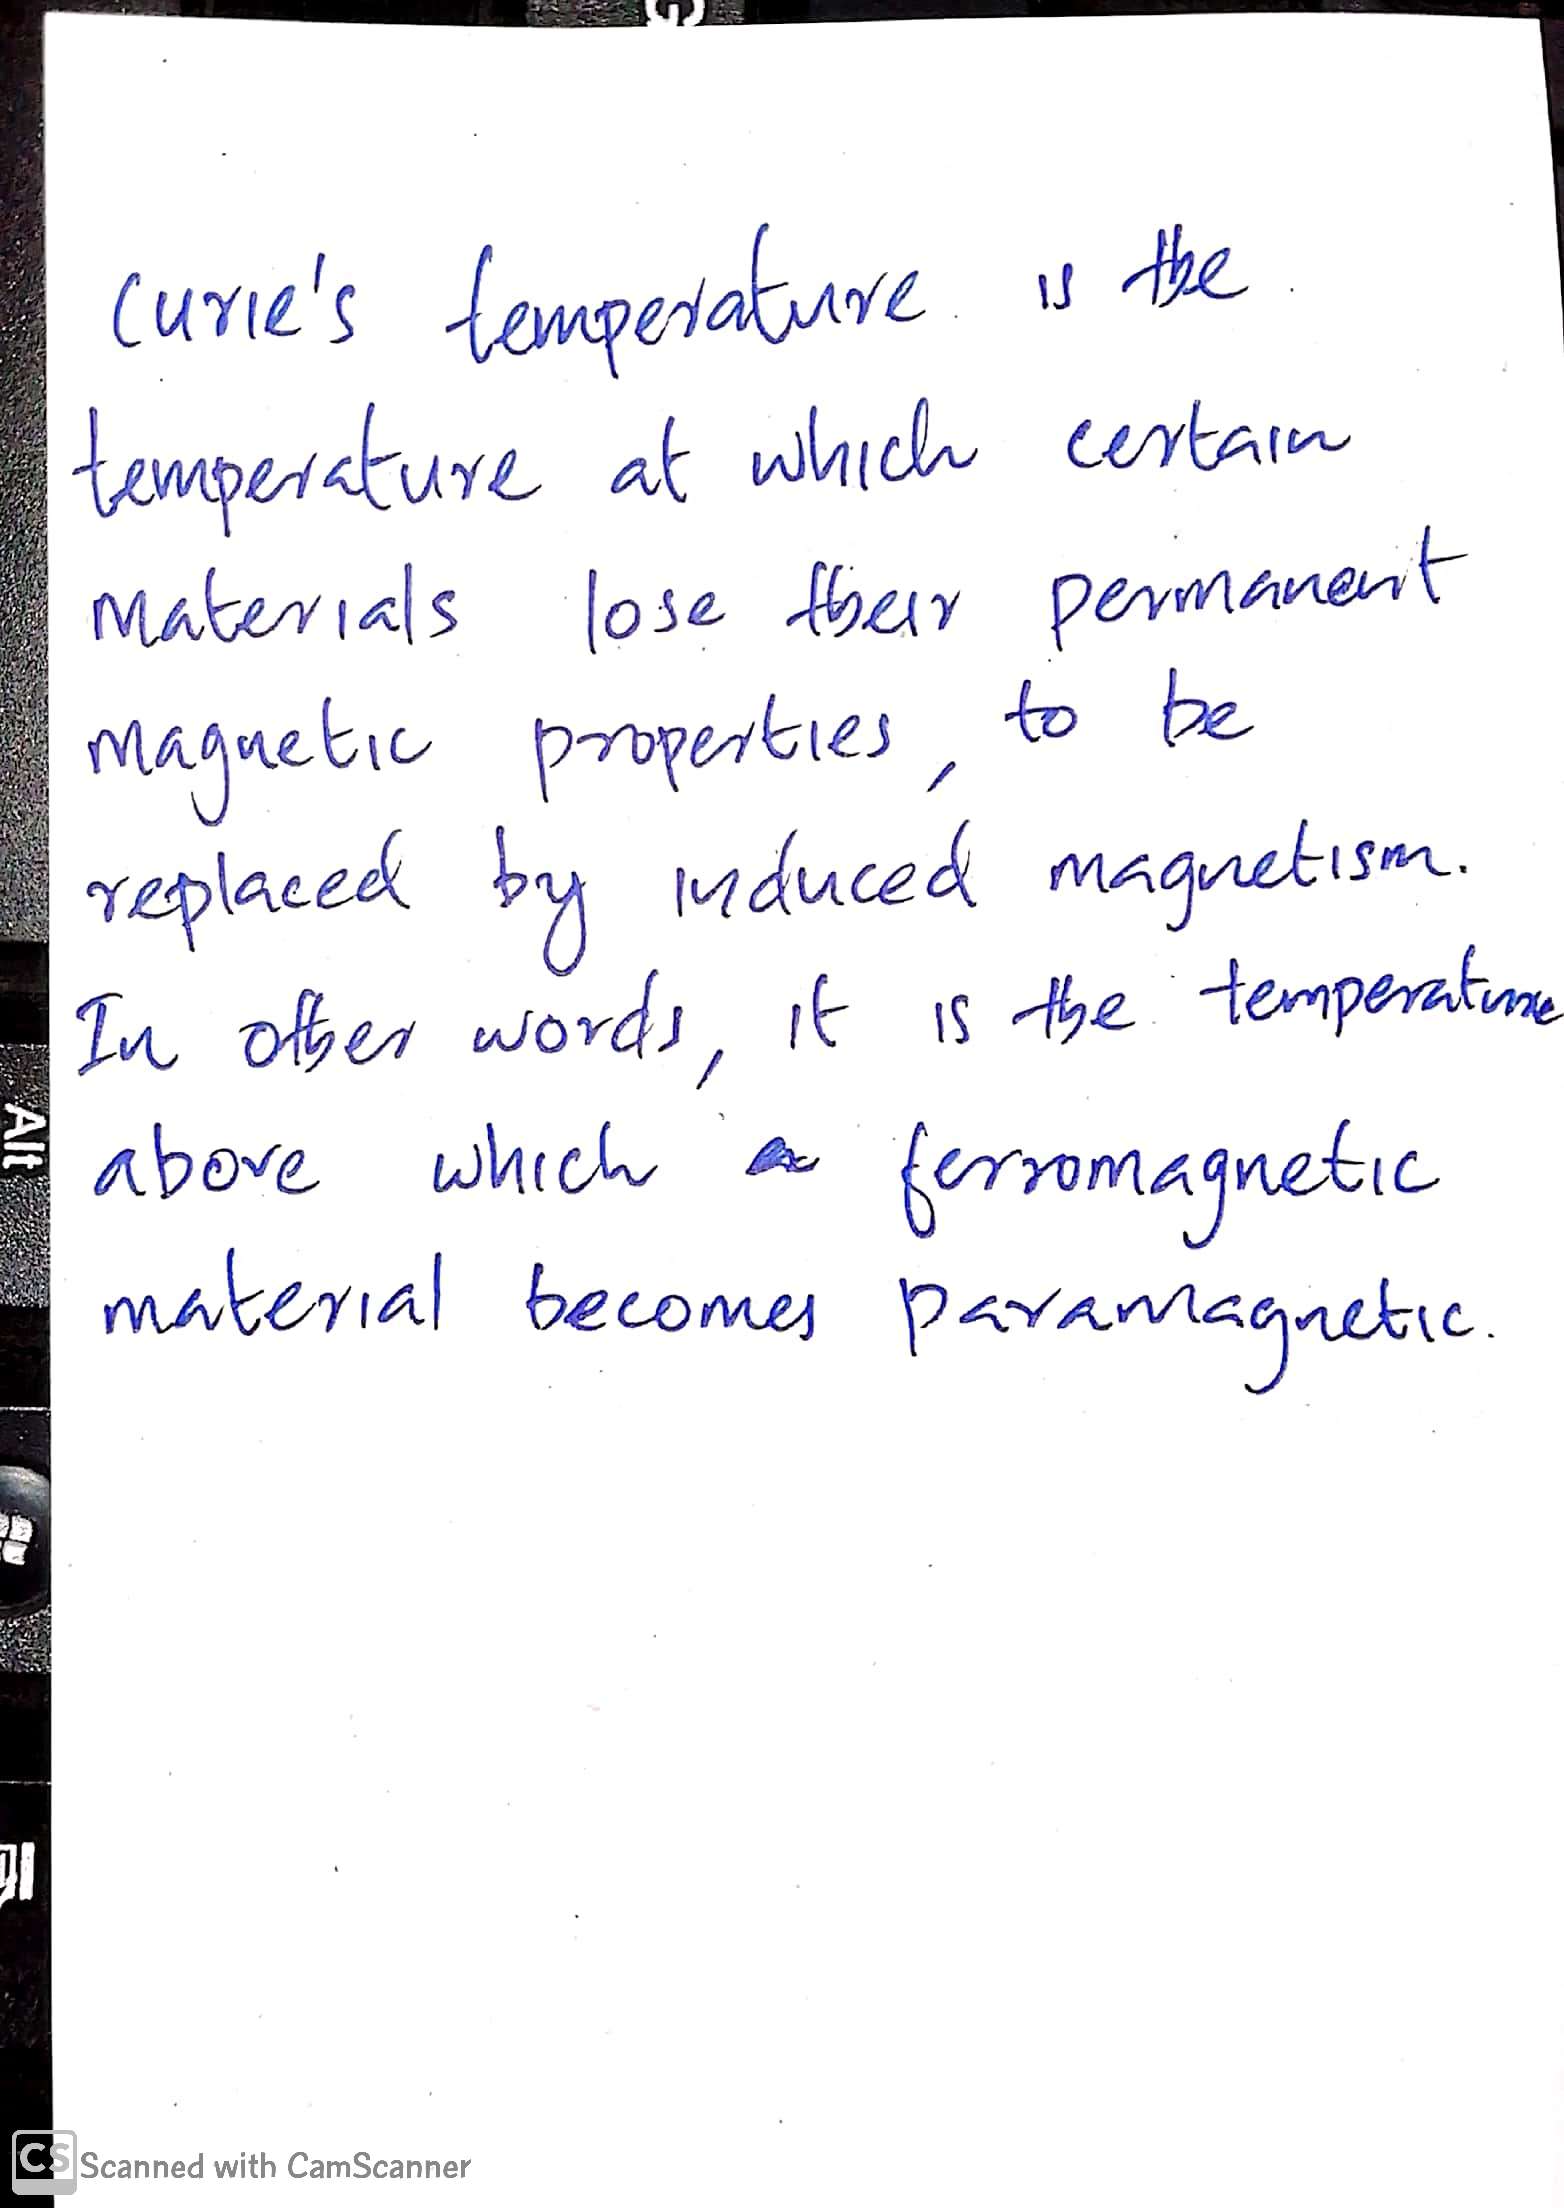 Curie's temperature is the
temperature at which certain
materials lose their permanent
magnetic properties, to be
replaced by induced magnetism.
In other words, it is the temperature
above which a ferromagnetic
material becomes paramagnetic.
Alt
CS Scanned with CamScanner